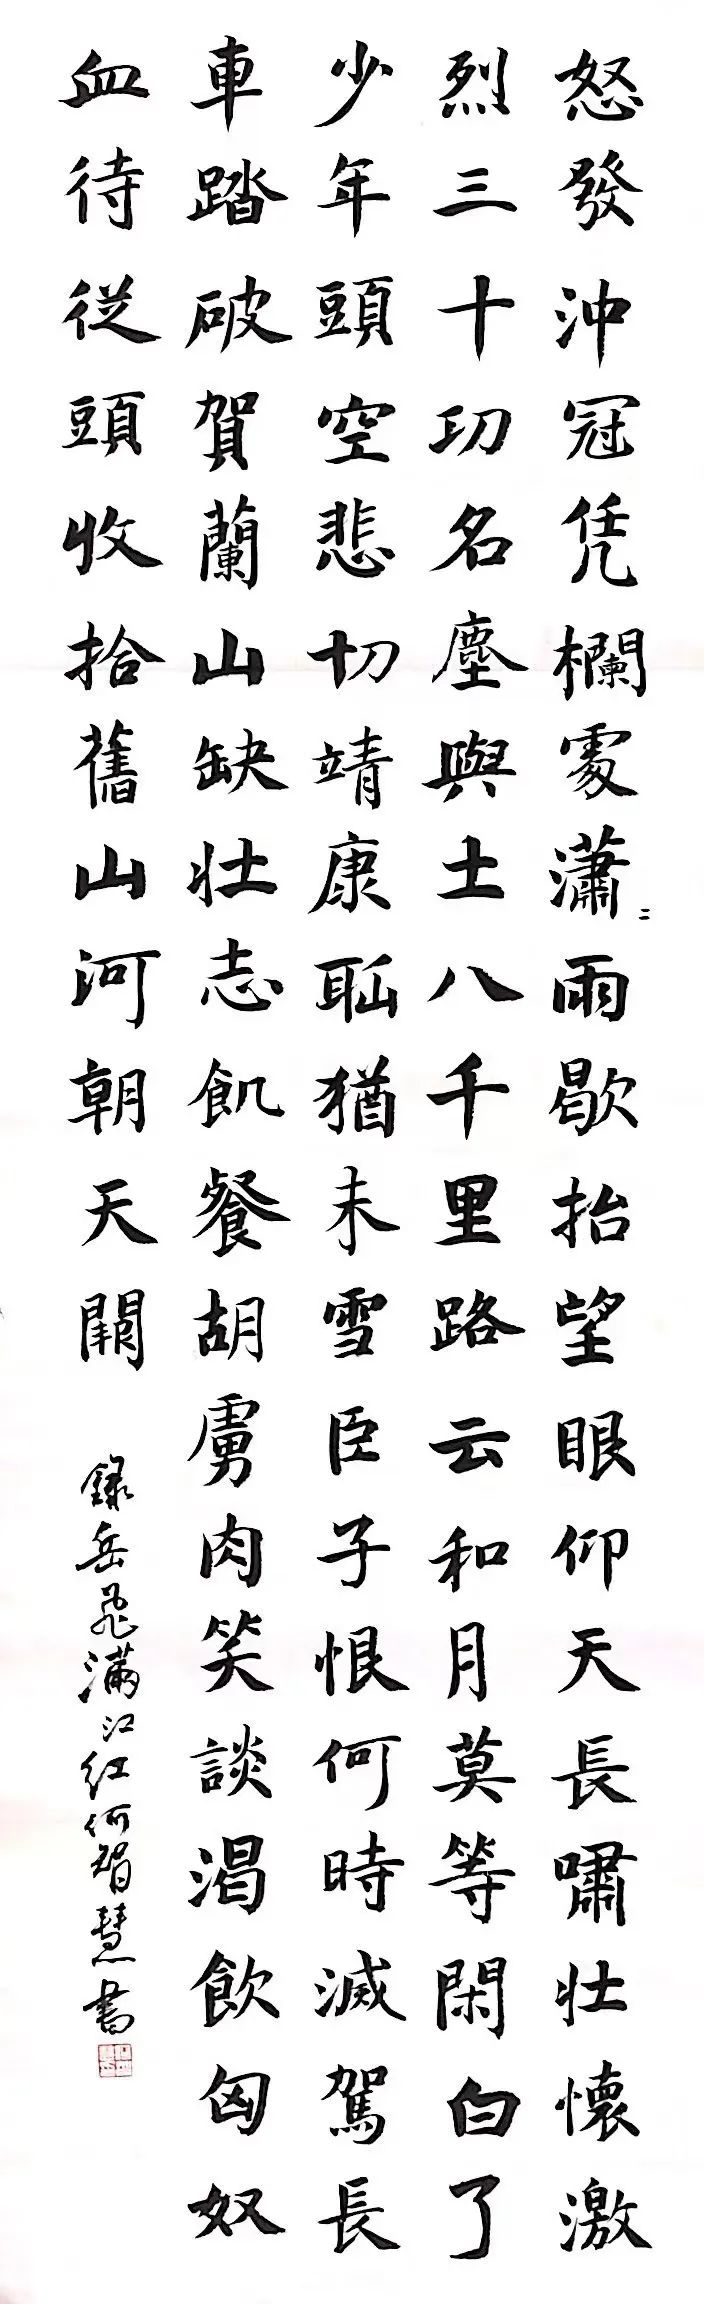 怒發沖冠凭欄處瀟〻雨歇抬望眼仰天長嘯壯懷激
烈三十功名塵與土八千里路云和月莫等閑白了
少年頭空悲切靖康恥猶未雪臣子恨何時滅駕長
車踏破賀蘭山缺壮志飢餐胡虜肉笑談渴飲匈奴
血待従頭收拾舊山河朝天闕
錄岳飛滿江红何智慧書